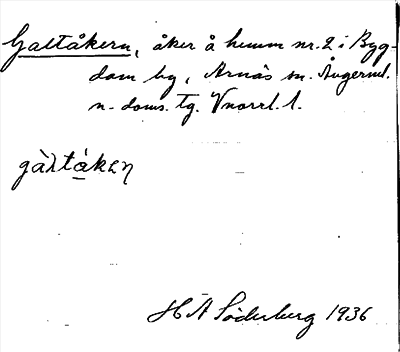 Galtåkern, åker å hemm nr. 2 i Byg-
dom by, Arnäs sn. Ångerml.
n. doms. tg. Vnorrl. l.
gàltá̠kɛn
H A Söderberg 1936